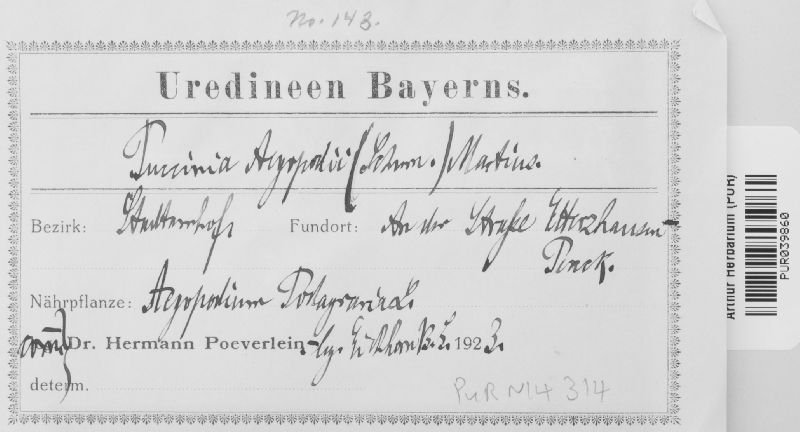 No. 143.
Uredineen Bayerns.
Puccinia Aegopodii (Schum.) Martius.
Bezirk: Stadtamhof. Fundort: An der Straße Etterzhausen–
Penck.
Nährpflanze: Aegopodium Podagraria L.
comm. Dr. Hermann Poeverlein. – leg. 1923.
determ.
PUR N14 314
Arthur Herbarium (PUR)
PUR039860